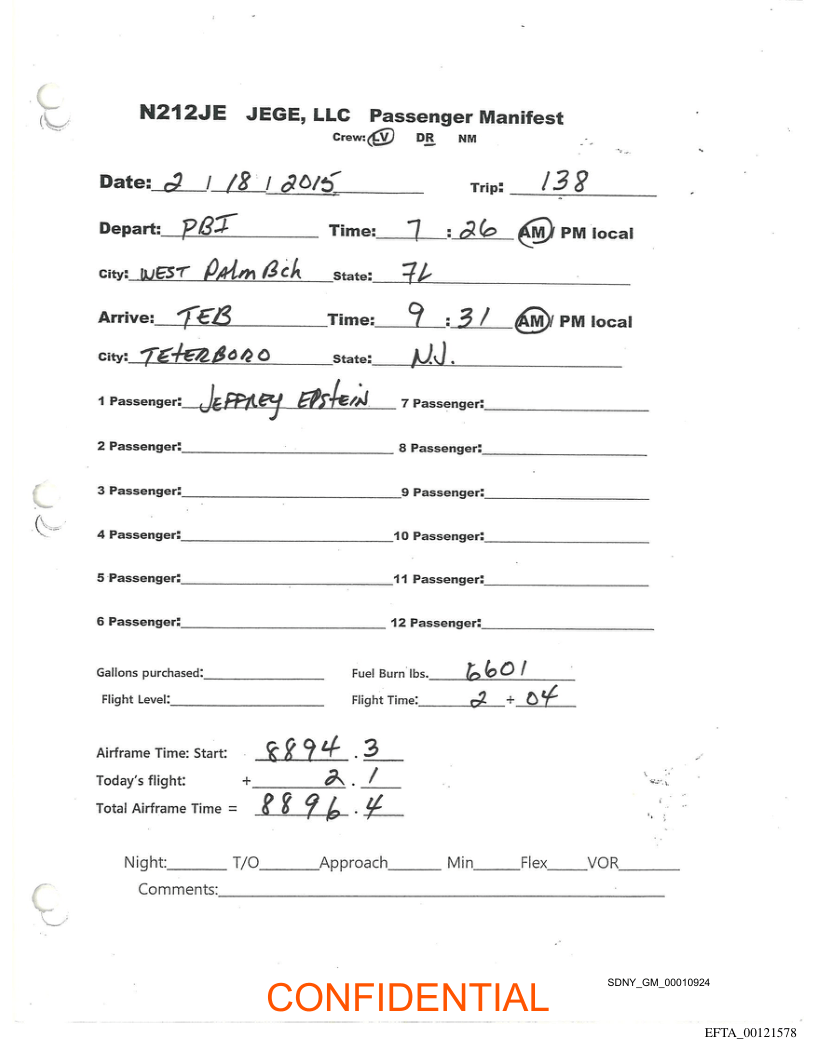 N212JE JEGE, LLC Passenger Manifest
Crew: LV DR NM
Date: 2 / 18 / 2015 Trip: 138
Depart: PBI Time: 7 : 26 AM/ PM local
City: WEST PAlm Bch State: FL
Arrive: TEB Time: 9 : 31 AM/ PM local
City: TETERBORO State: N.J.
1 Passenger: JEFFREY EPStEIN 7 Passenger:
2 Passenger: 8 Passenger:
3 Passenger: 9 Passenger:
4 Passenger: 10 Passenger:
5 Passenger: 11 Passenger:
6 Passenger: 12 Passenger:
Gallons purchased: Fuel Burn lbs. 6601
Flight Level: Flight Time: 2 + 04
Airframe Time: Start: 8894 . 3
Today's flight: + 2 . 1
Total Airframe Time = 8896 . 4
Night: T/O Approach Min Flex VOR
Comments:
SDNY_GM_00010924
CONFIDENTIAL
EFTA_00121578